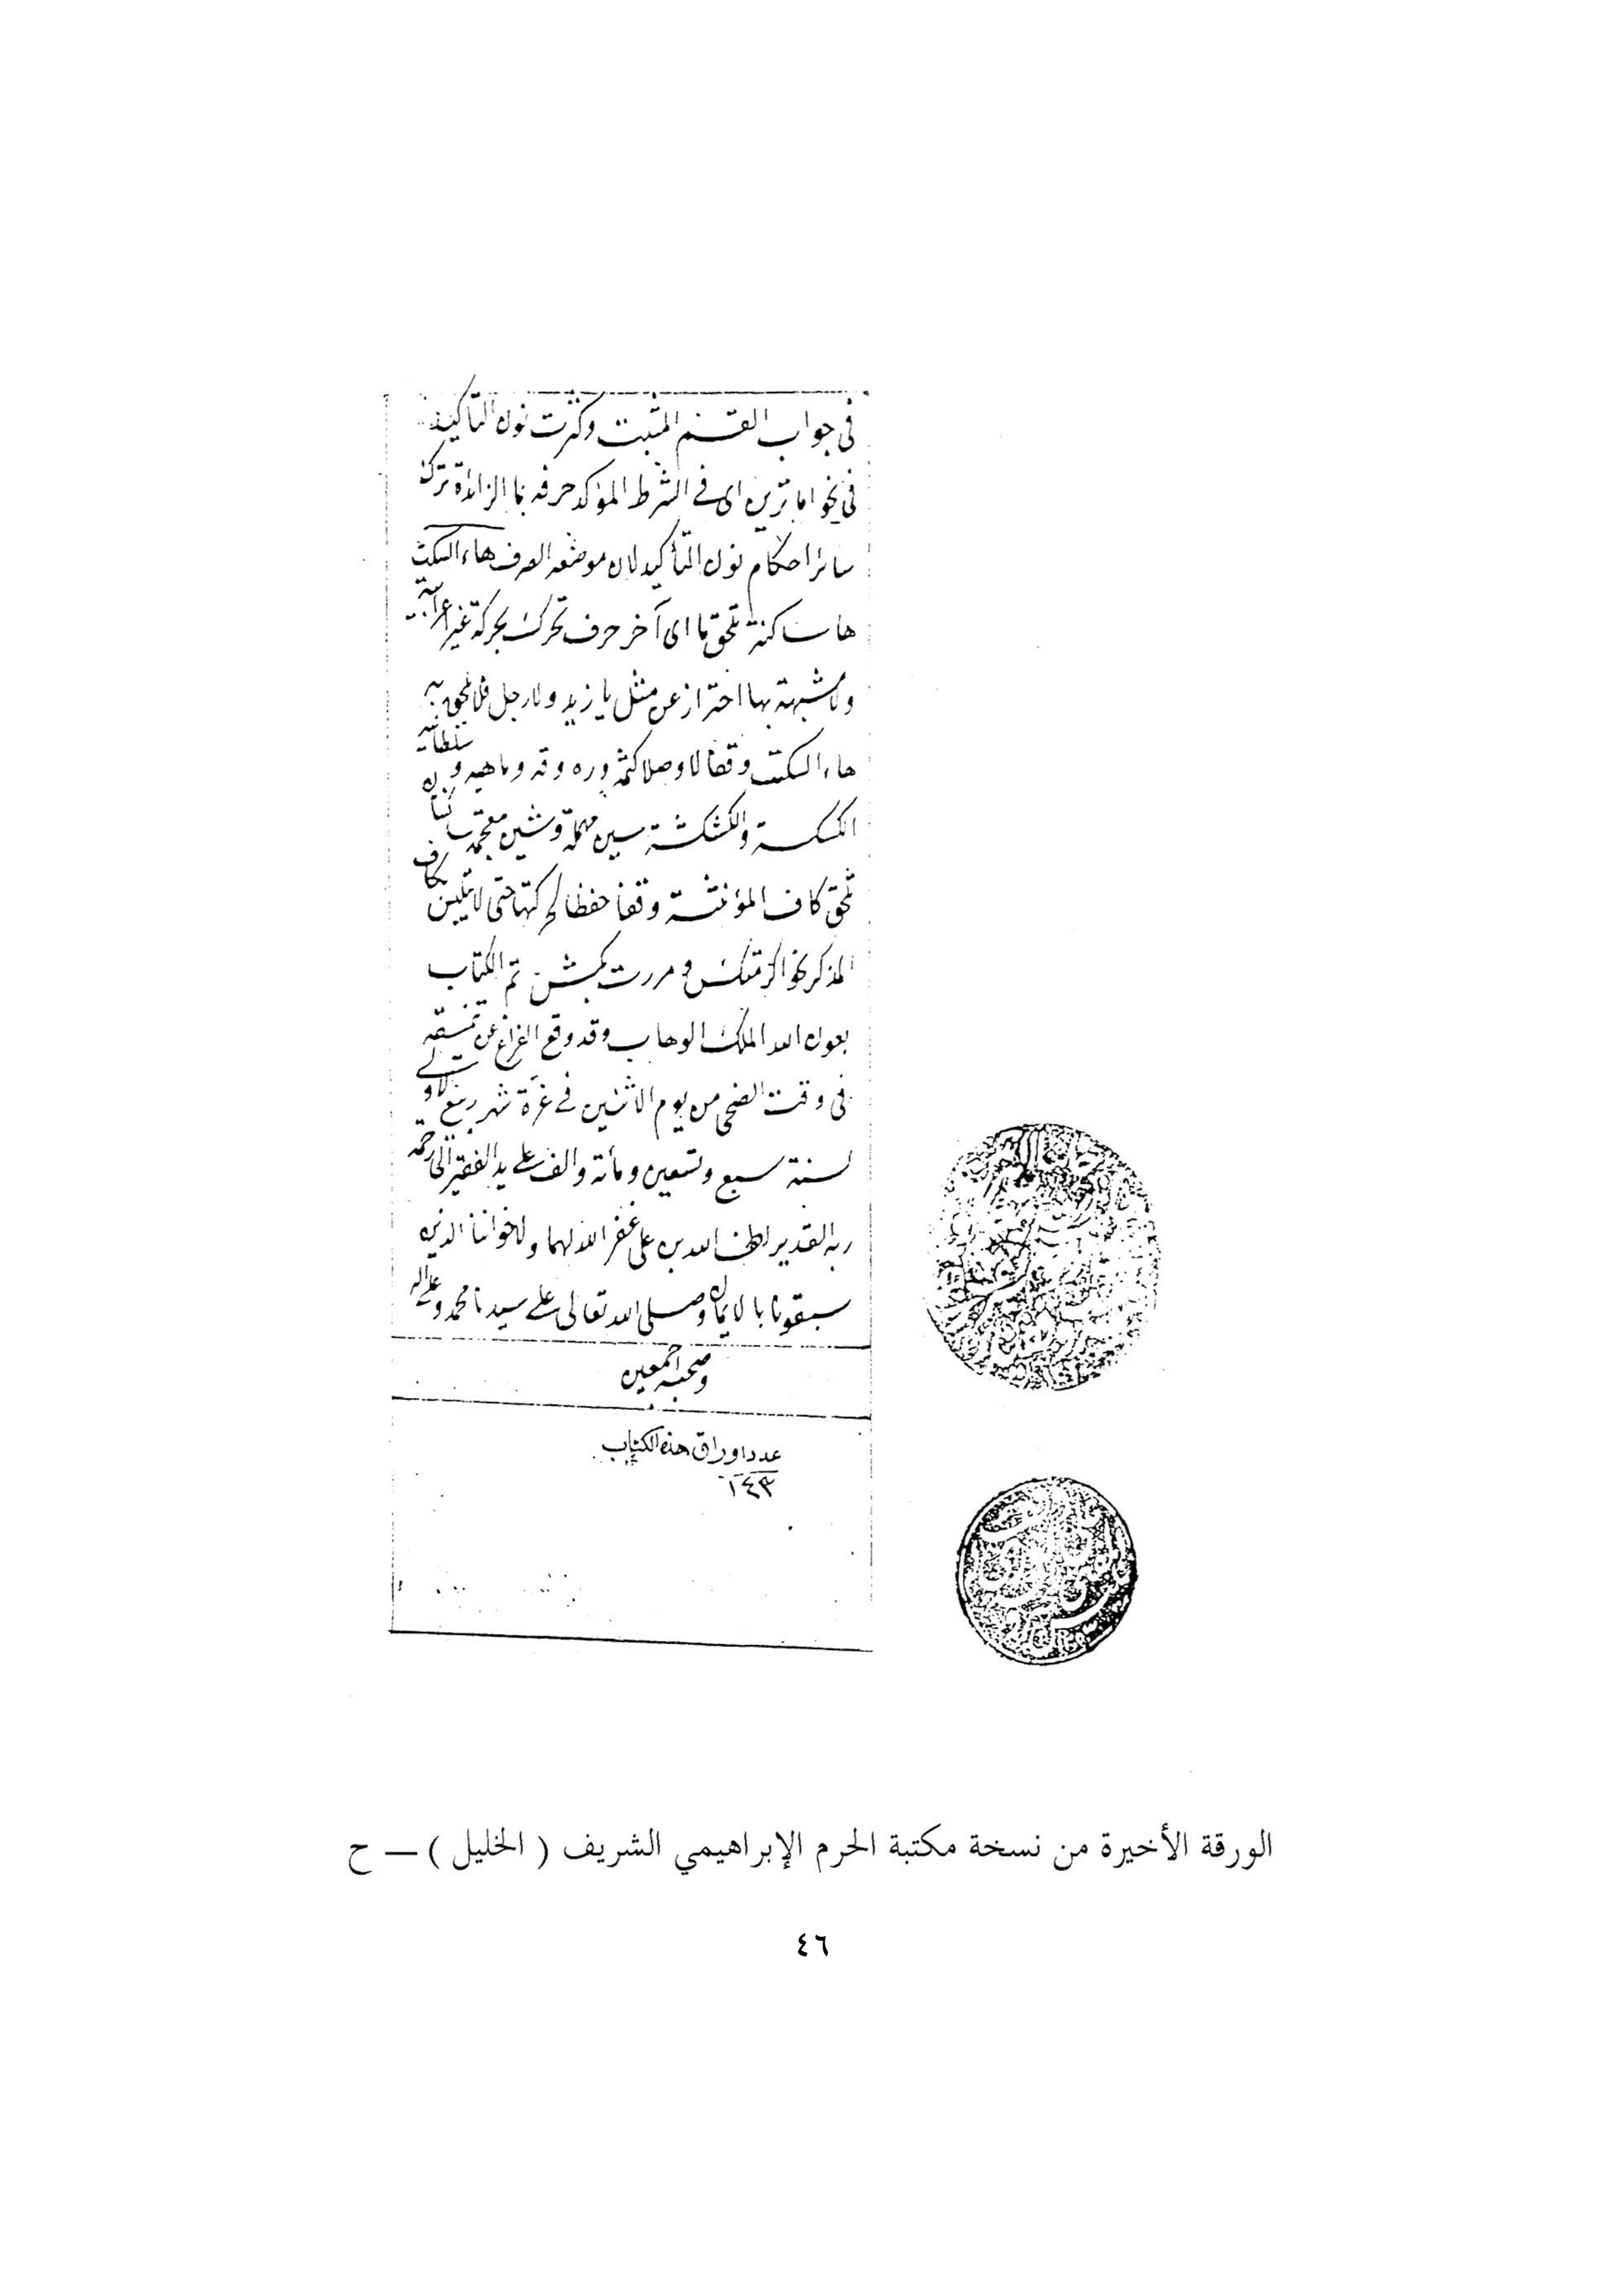 في جواب القسم المثبت وكثرت نون التأكيد
في نحو اما ترين اى في الشرط المؤكد حرفه بما الزائدة ترك
سائر احكام نون التأكيد لان موضعه الصرف هاء السكت
هاء ساكنة تلحق ما اى آخر حرف تحرك بحركة غير اعرابية
ولا مشبهة بها احتراز عن مثل يا زيد ولا رجل فلا تلحق به
هاء السكت وقفا لا وصلا كثمه وره وقه وماهيه و سلطانيه
الكسكسة والكشكشة سين مهملة وشين معجمة
تلحق كاف المؤنثة وقفا حفظا لحركتها حتى لا تلتبس بكاف
المذكر نحو اكرمتكس ومررت بكش تم الكتاب
بعون الله الملك الوهاب وقد وقع الفراغ عن تنميقه
في وقت الضحى من يوم الاثنين في غرة شهر ربيع الاول
لسنة سبع وتسعين ومأة والف على يد الفقير الى رحمة
ربه القدير لطف الله بن على غفر الله لهما ولاخواننا الذين
سبقونا بالايمان وصلى الله تعالى على سيدنا محمد وعلى اله
وصحبه اجمعين
عدد اوراق هذه الكتاب
١٤٣
الورقة الأخيرة من نسخة مكتبة الحرم الإبراهيمي الشريف ( الخليل ) — ح
٤٦